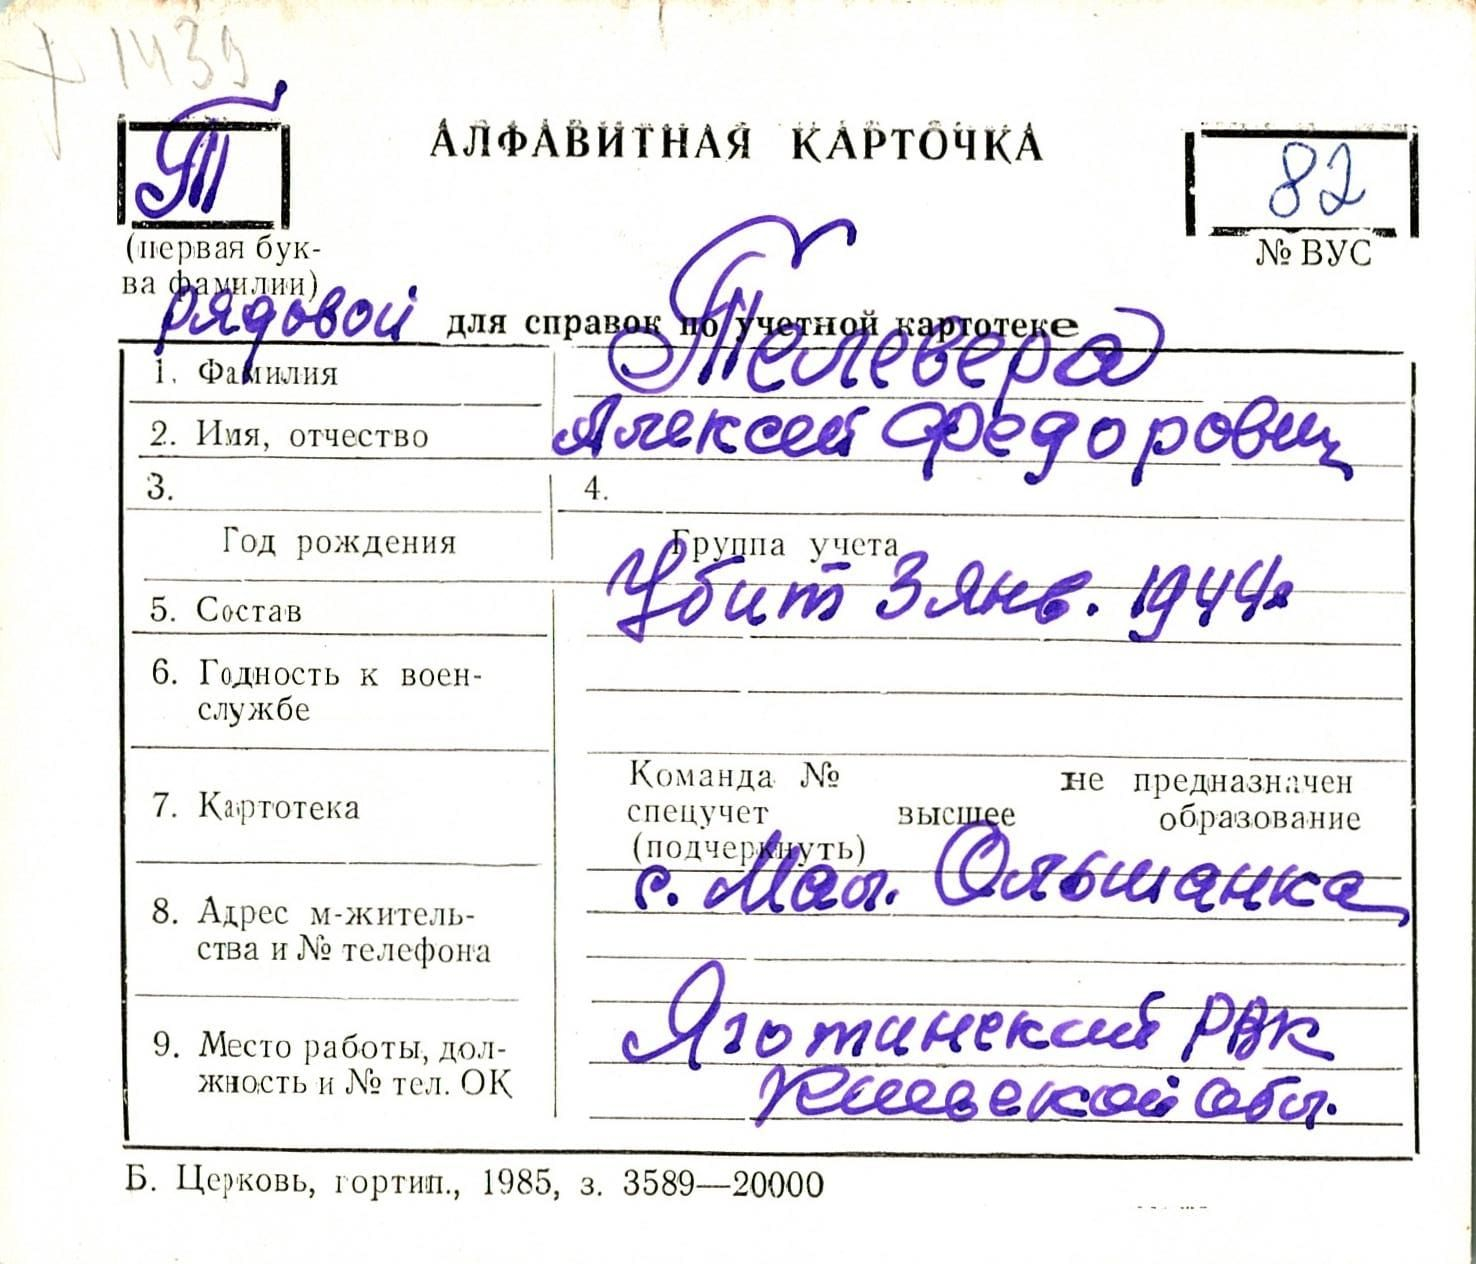 1439
Т
АЛФАВИТНАЯ КАРТОЧКА
82
(первая бук-
ва фамилии)
№ ВУС
рядовой
для справок по учетной картотеке
1. Фамилия Телевера
2. Имя, отчество Алексей Федорович
3. 4.
Год рождения Группа учета
Убит 3 янв. 1944г
5. Состав
6. Годность к воен-
службе
Команда № не предназначен
7. Картотека спецучет высшее образование
(подчеркнуть)
с. Мал. Ольшанка
8. Адрес м-житель-
ства и № телефона
Яготинский РВК
9. Место работы, дол-
жность и № тел. ОК
Киевской обл.
Б. Церковь, гортип., 1985, з. 3589—20000